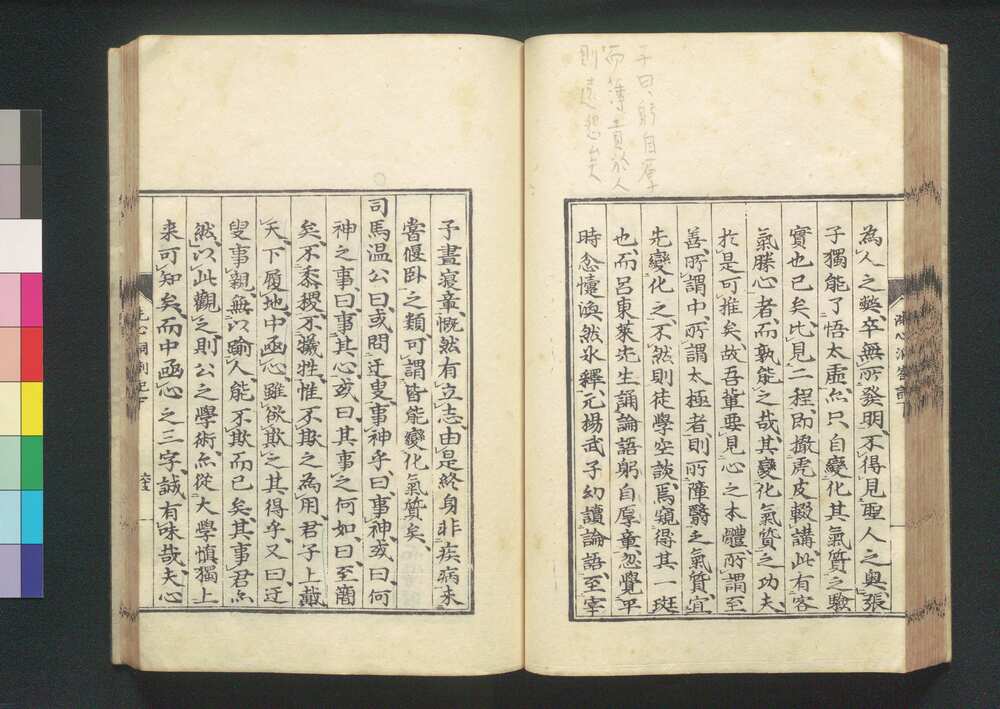 子曰、躬自厚
而薄責於人
則遠怨矣
為人之弊、卒無所發明、不得見聖人之奧、張
子獨能了悟太虛、亦只自變化其氣質之驗
實也已矣、比見二程、即撤虎皮輟講、此有客
氣勝心者、而孰能之哉、其變化氣質之功夫、
於是可推矣、故吾輩要見心之本體、所謂至
善、所謂中、所謂太極者、則所障翳之氣質、宜
先變化之、不然則徒學空談、焉窺得其一斑
也、而呂東萊先生誦論語躬自厚章、忽覺平
時忿懥渙然氷釋、元揚武子幼讀論語、至宰
子晝寢章、慨然有立志、由是終身非疾病未
嘗偃臥之類、可謂皆能變化氣質矣、
司馬溫公曰、或問、迂叟事神乎、曰、事神、或曰、何
神之事、曰、事其心、或曰、其事之何如、曰、至簡
矣、不黍稷、不犧牲、惟不欺之為用、君子上戴
天、下履地、中函心、雖欲欺之其得乎、又曰、迂
叟事親、無以踰人、能不欺而已矣、其事君亦
然、以此觀之、則公之學術、亦從大學慎獨上
来可知矣、而中函心之三字、誠有味哉、夫心